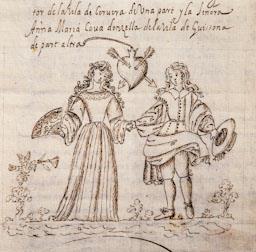 tor de la Vila de Cervera de Una part y la Señora
Anna Maria Cova donzella de la Vila de Guissona
de part altra